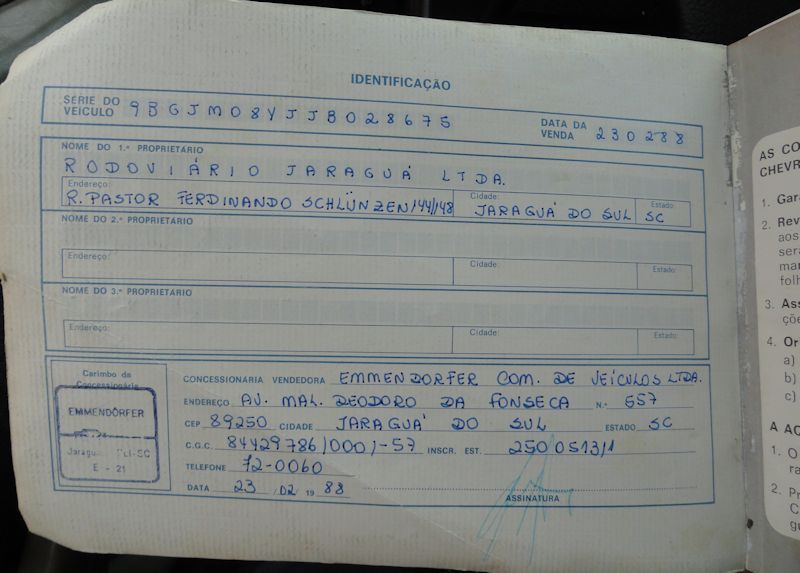 IDENTIFICAÇÃO
SÉRIE DO VEÍCULO 9BGJM08YJJB028675 DATA DA VENDA 230288
NOME DO 1.º PROPRIETÁRIO
RODOVIÁRIO JARAGUÁ LTDA.
Endereço: R. PASTOR FERDINANDO SCHLÜNZEN, 144/148 Cidade: JARAGUÁ DO SUL Estado: SC
NOME DO 2.º PROPRIETÁRIO
Endereço: Cidade: Estado:
NOME DO 3.º PROPRIETÁRIO
Endereço: Cidade: Estado:
Carimbo da Concessionária
EMMENDÖRFER
E - 21
CONCESSIONÁRIA VENDEDORA EMMENDORFER COM. DE VEÍCULOS LTDA.
ENDEREÇO AV. MAL. DEODORO DA FONSECA N.º 557
CEP 89250 CIDADE JARAGUÁ DO SUL ESTADO SC
C.G.C. 84429786/0001-57 INSCR. EST. 250051311
TELEFONE 72-0060
DATA 23 /02 19 88
ASSINATURA
AS CO
CHEVR
1. Gar
2. Rev
aos
ser
ma
folh
3. Ass
çõe
4. Or
a)
b)
c)
A AC
1. O
ra
2. Pr
C